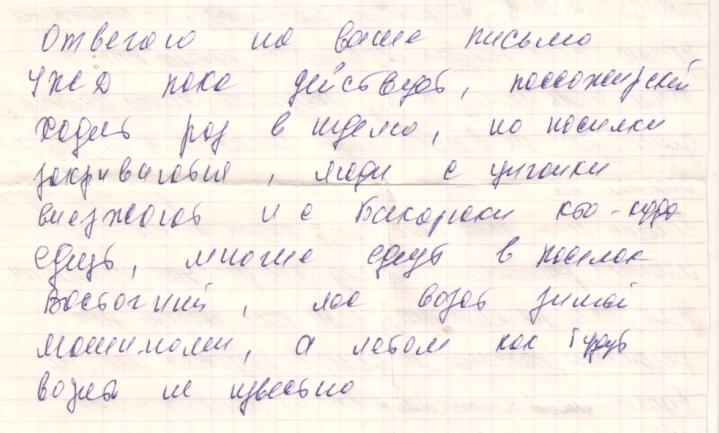 Отвечаю на ваше письмо
УЖД пока действует, пассажирский
ходит раз в неделю, но поселки
закриваютья, люди с
виезжают и с кто-куда
едут, многие едут в поселок
Восточний, лес возят зимой
машинами, а летом как будут
возить не известно